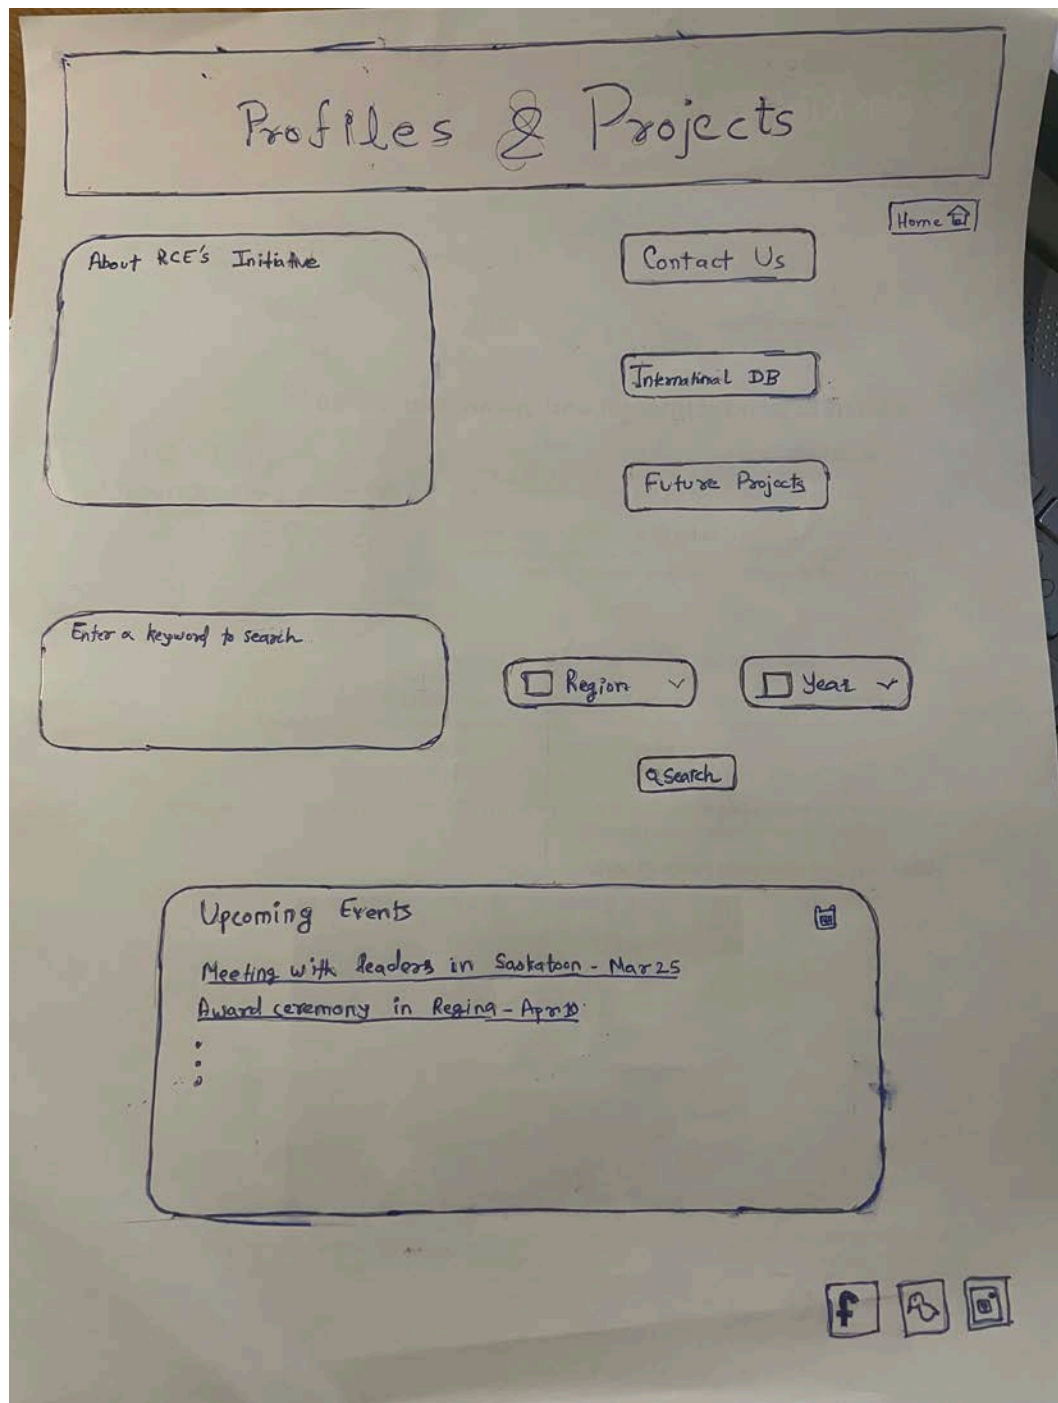 Profiles & Projects
Home
About RCE's Initiative
Contact Us
International DB
Future Projects
Enter a keyword to search
Region
Year
Search
Upcoming Events
Meeting with leaders in Saskatoon - Mar 25
Award ceremony in Regina - Apr 10
f